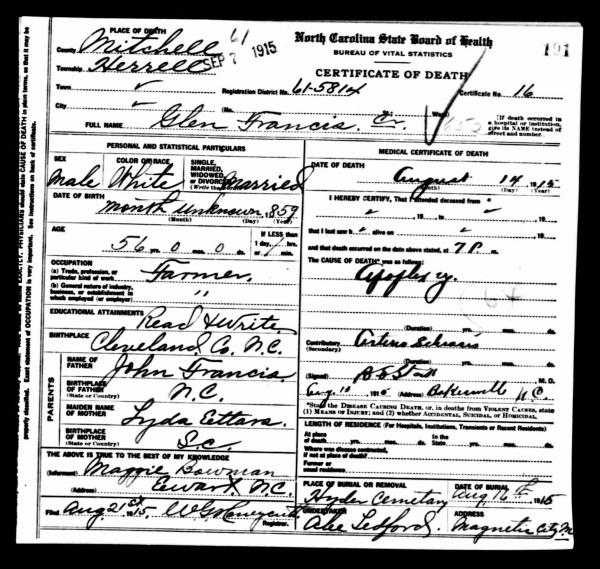 North Carolina State Board of Health
BUREAU OF VITAL STATISTICS
CERTIFICATE OF DEATH
191
PLACE OF DEATH
61
County Mitchell
SEP 7 1915
Township Herrell
Town ✓
Registration District No. 61-5814
Certificate No. 16
City
(No. St.; Ward)
[If death occurred in a hospital or institution, give its NAME instead of street and number.]
FULL NAME Glen Francis
PERSONAL AND STATISTICAL PARTICULARS
SEX
Male
COLOR OR RACE
White
SINGLE, MARRIED, WIDOWED, OR DIVORCED
Married
DATE OF BIRTH
Month unknown, 859
(Month) (Day) (Year)
AGE
56 yrs. 0 mos. 0 ds.
If LESS than
1 day, hrs.
or min.
OCCUPATION
(a) Trade, profession, or particular kind of work
Farmer.
(b) General nature of industry, business, or establishment in which employed (or employer)
"
EDUCATIONAL ATTAINMENTS Read & Write
BIRTHPLACE
Cleveland Co N.C.
PARENTS
NAME OF FATHER
John Francis
BIRTHPLACE OF FATHER
(State or Country)
N.C.
MAIDEN NAME OF MOTHER
Lyda Ettara
BIRTHPLACE OF MOTHER
(State or Country)
S.C.
THE ABOVE IS TRUE TO THE BEST OF MY KNOWLEDGE
(Informant) Maggie Bowman
(Address) Ewart N.C.
Filed Aug 21st 1915,
MEDICAL CERTIFICATE OF DEATH
DATE OF DEATH
August 14 1915
(Month) (Day) (Year)
I HEREBY CERTIFY, That I attended deceased from
19 to 19
that I last saw h alive on 19
and that death occurred on the date above stated, at 7 P. m.
The CAUSE OF DEATH was as follows:
Apoplexy.
64
(Duration) yrs. mos. ds.
Contributory
(Secondary)
(Duration) yrs. mos. ds.
(Signed) M. D.
1915 (Address) Bakersville N.C.
*State the DISEASE CAUSING DEATH, or, in deaths from VIOLENT CAUSES, state (1) MEANS OF INJURY; and (2) whether ACCIDENTAL, SUICIDAL, or HOMICIDAL.
LENGTH OF RESIDENCE (For Hospitals, Institutions, Transients or Recent Residents)
At place of death yrs. mos. ds. In the State yrs. mos. ds.
Where was disease contracted, if not at place of death?
Former or usual residence
PLACE OF BURIAL OR REMOVAL
Hyder Cemetary
DATE OF BURIAL
Aug 16th 1915
UNDERTAKER
Abe Ledford.
ADDRESS
Magnetic City N.